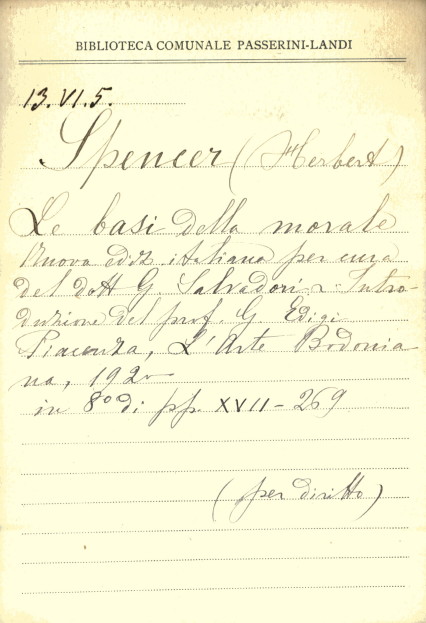 BIBLIOTECA COMUNALE PASSERINI-LANDI
13.VI.5.
Spencer (Herbert)
Le basi della morale
Nuova ediz. italiana per cura
del dott G. Salvadori - Intro-
duzione del prof. G Edigi
Piacenza, L'Arte Bodonia
na, 1920
in 8º di pp. XVII - 269
(per diritto)